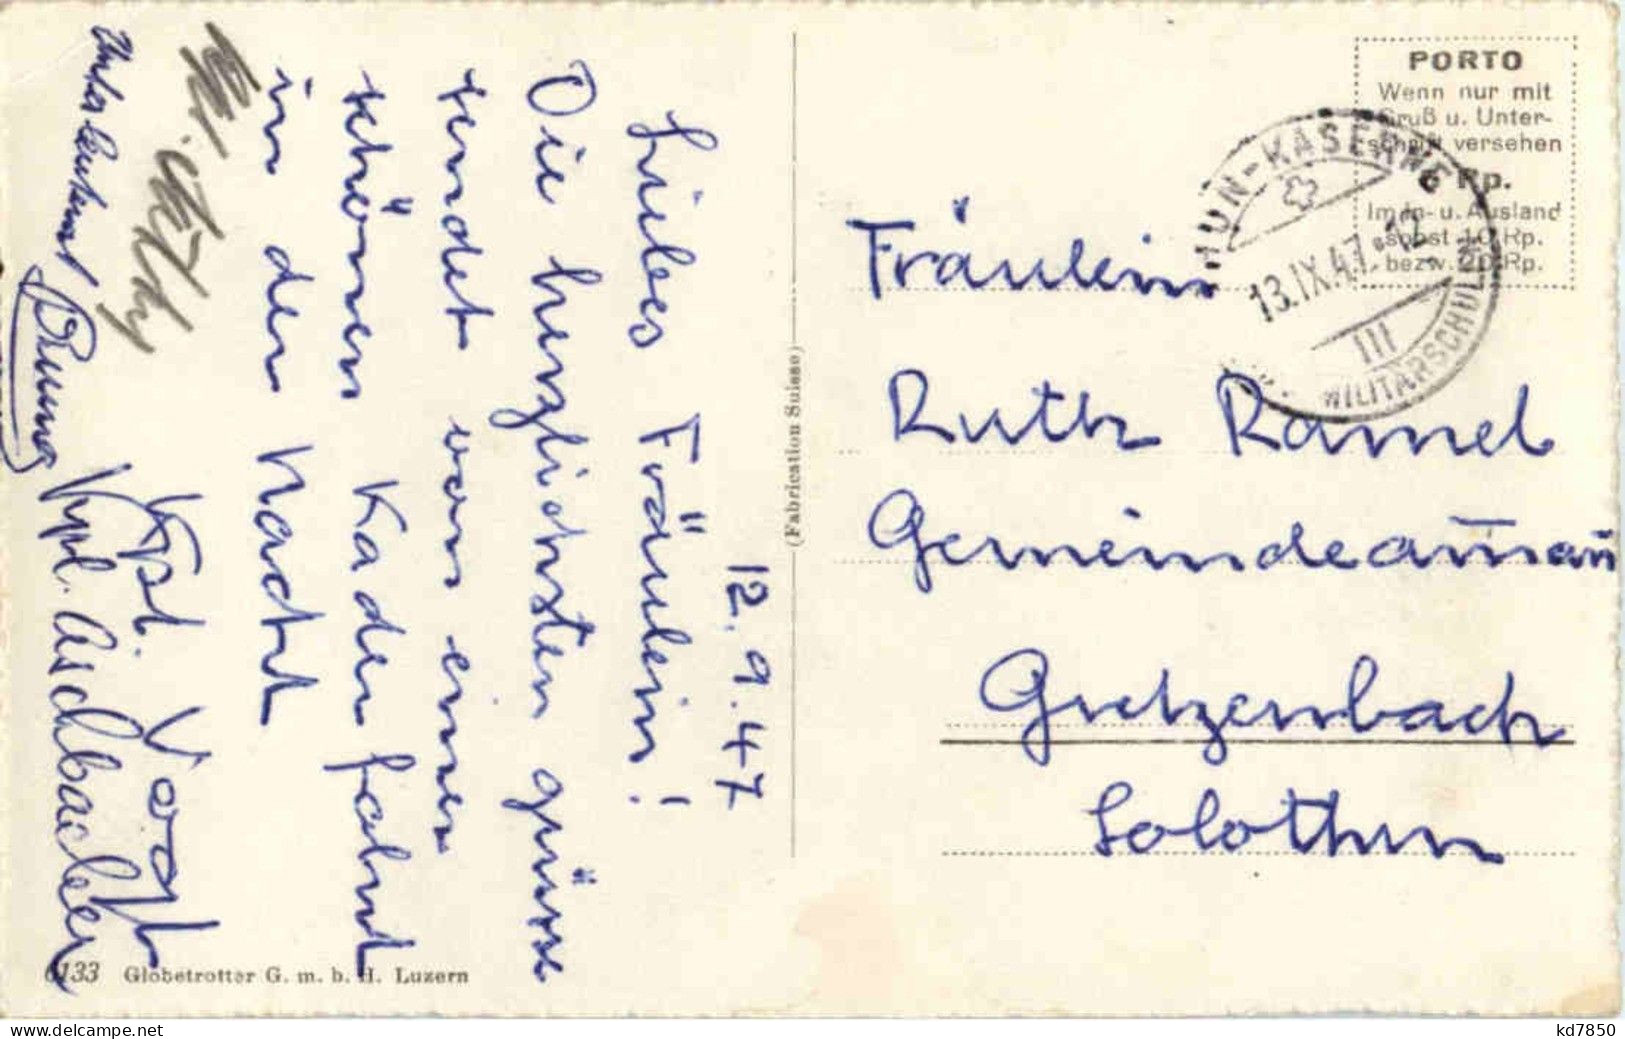 12. 9. 47
Liebes Fräulein!
Die herzlichsten grüsse
sendet von einer
schönen Kaderfahrt
in der Nacht
Kpl. Vogt
Kpl. Aschbacher
(Fabrication Suisse)
6133 Globetrotter G. m. b. H. Luzern
PORTO
Wenn nur mit
Gruß u. Unter-
schrift versehen
6 Rp.
Im In- u. Ausland
sonst 10 Rp.
bezw. 20 Rp.
THUN-KASERNE
13.IX.47.
III
MILITÄRSCHULEN
Fräulein
Ruth Ramel
Gemeindeam̄an̄
Gretzenbach
Solothurn
kd7850